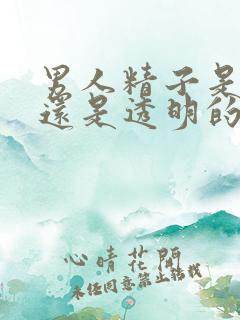 男人精子是
還是透明的
心晴花開
未经同意禁止转载